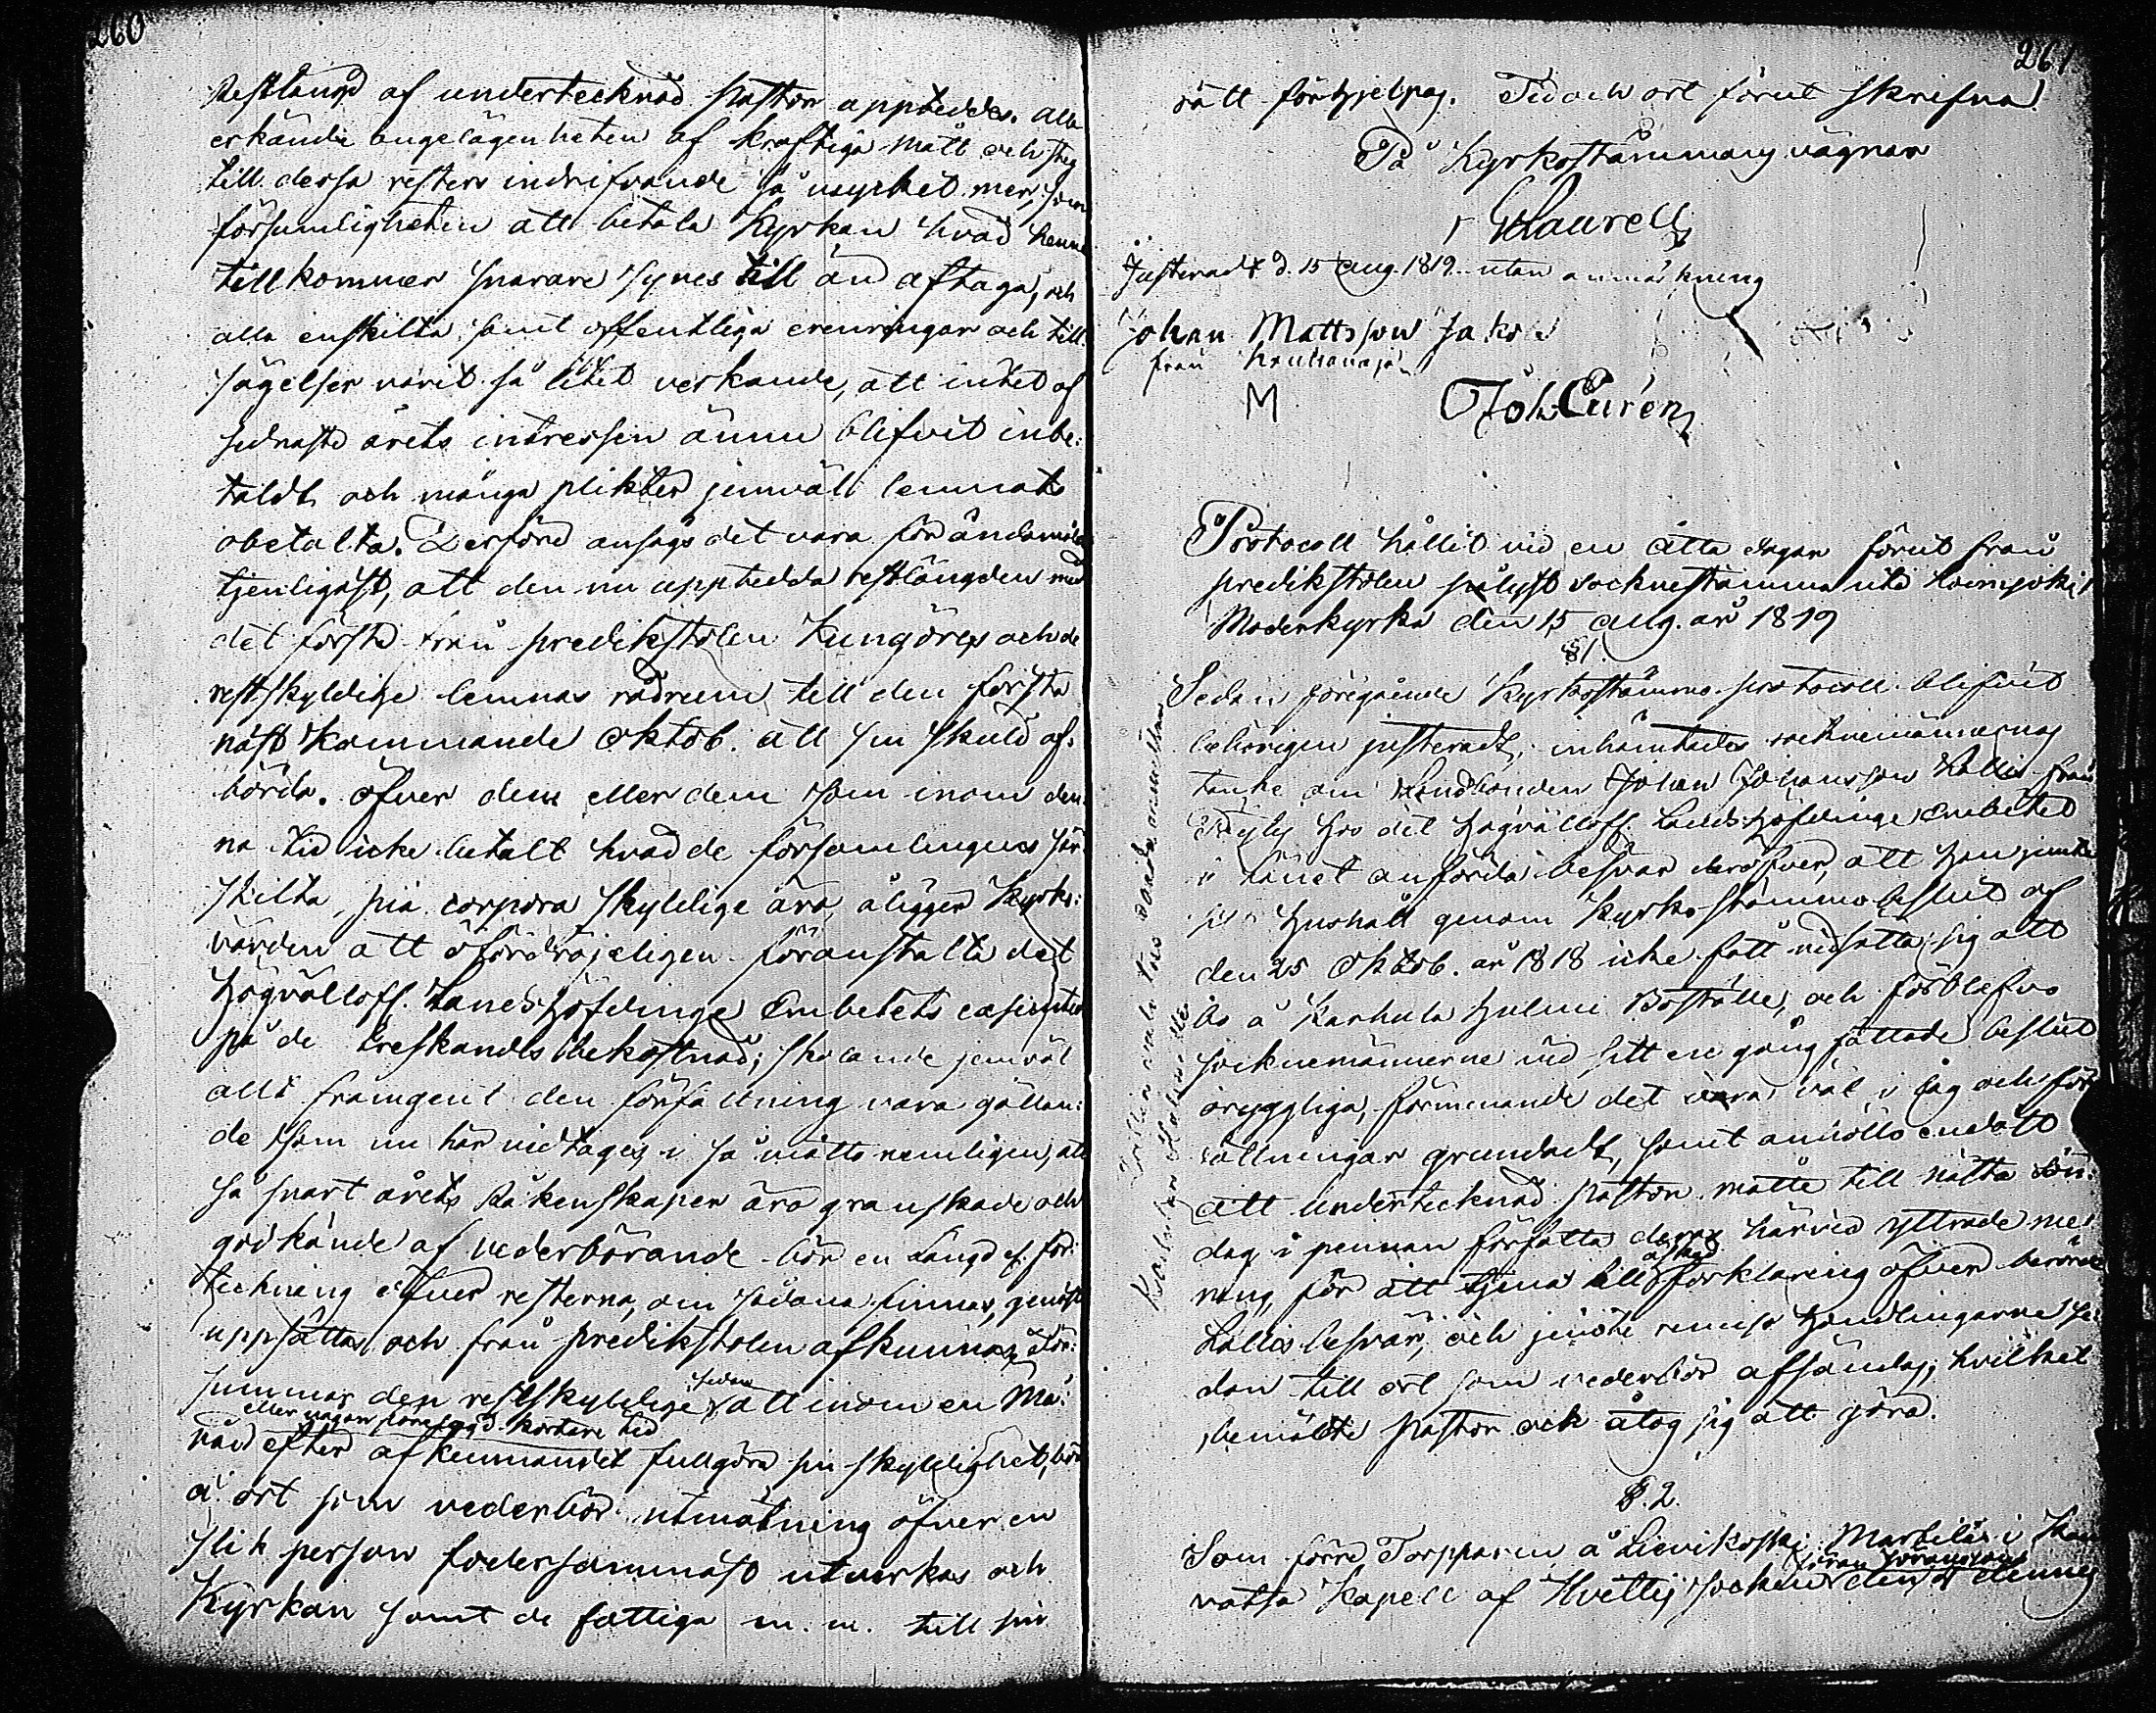 260
Restlängd af undertecknad Pastor uppteddes. Alla
erkände angelägenheten af kraftiga mått och steg
till dessa resters indrifvande så mycket mer, som
försumligheten att betala Kyrkan hvad henne
tillkommer snarare synes till än aftaga, och
alla enskilta samt offentliga erinringar och till-
sägelser varit så litet verkande, att intet af
sednaste årets intressen ännu blifvit inbe-
taldt och många plikter jemväl lemnats
obetalta. Derföre ansågs det vara för ändamålet
tjenligast, att den nu uppteedda restlängden med
det första från predikstolen kungöres och de
restskyldige lemnas rådrum till den första
näst kommande Oktob. att sin skuld af-
börda. Öfver dem eller dem som inom den-
na tid icke betalt hvad de församlingens sär-
skilta pia corpora skyldige äro, åligger Kyrko-
värden att ofördröjeligen föranstalta det
Högvällofl. Landshöfdinge Embetets
på de treskandes bekostnad; skolande jemväl
allt framgent den författning vara gällan-
de som nu här vidtages, i så måtto nemligen, att
så snart årets Räkenskaper äro granskade och
godkände af vederbörande bör en Längd el. för-
teckning öfver resterna, om sådana finnas, genast
uppsättas och från predikstolen afkunnas. För-
summar den restskyldige sedan att inom en Må-
eller någon föresagd kortare tid
nad efter afkunnandet fullgöra sin skyldighet, bör
å ort som vederbör utmätning öfver en
slik person fodersammast utverkas och
Kyrkan samt de fattiga m. m. till sin
261
rätt förhjelpas. Tid och ort förut skrifna.
På Kyrkostämmans vägnar
Laurell
Justeradt d. 15 Aug. 1819 utan anmärkning
Johan Mattsson Jako
från
M
Joh Curén
Protocoll hållit vid en åtta dagar förut från
predikstolen pålyst sockenstämma uti Loimjoki
Moderkyrka den 15 Aug. år 1819
§ 1.
Sedan föregående Kyrkostämmo-protocoll blifvit
behörigen justeradt, inhämtades socknemännernas
tanke om Landbonden Johan Johansson Kallis från
hos det Högvällofl. Landshöfdinge Embetet
i länet anförda besvär deröfver, att han jemte
sit Hushåll genom Kyrko-stämmo beslut af
den 25 Oktob. år 1818 icke fått nedsätta sig att
bo å Karhula Hulmi Boställe, och förblefvo
socknemännerne vid sitt en gång fattade beslut
orygglige, förmenande det vara väl i lag och för-
fattningar grundadt, samt anhöllo endast
att undertecknad Pastor måtte till nästa Sön-
dag i pennan författa deras härvid yttrade me-
ning, för att tjena till äskad förklaring öfver berörde
Kallis besvär, och jemte remiss Handlingarne se-
dan till ort som vederbör afsändas; hvilket
bemälte Pastor ock åtog sig att göra.
§. 2.
Som förre Torpparen å Lievikoski Marttila i
Jöran Jöransson
vatsa Kapell af Hvittis socken den